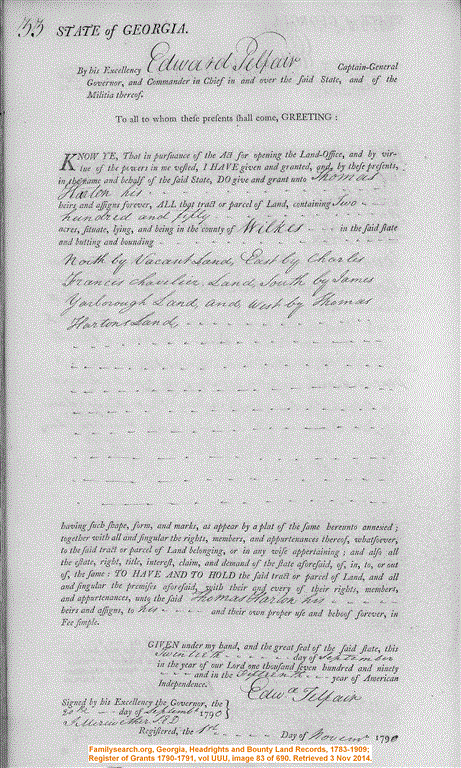 33 STATE of GEORGIA.
By his Excellency Edward Telfair Captain-General
Governor, and Commander in Chief in and over the said State, and of the
Militia thereof.
To all to whom these presents shall come, GREETING:
KNOW YE, That in pursuance of the Act for opening the Land-Office, and by vir-
tue of the powers in me vested, I HAVE given and granted, and, by these presents,
in the name and behalf of the said State, DO give and grant unto Thomas
Harton his
heirs and assigns forever, ALL that tract or parcel of Land, containing Two
hundred and fifty
acres, situate, lying, and being in the county of Wilkes in the said state
and butting and bounding
North by Vacant Land, East by Charles
Francis Land, South by James
Yarborough Land and West by Thomas
Hartons Land,
having such shape, form, and marks, as appear by a plat of the same hereunto annexed;
together with all and singular the rights, members, and appurtenances thereof, whatsoever,
to the said tract or parcel of Land belonging, or in any wise appertaining; and also all
the estate, right, title, interest, claim, and demand of the state aforesaid, of, in, to, or out
of, the same: TO HAVE AND TO HOLD the said tract or parcel of Land, and all
and singular the premises aforesaid, with their and every of their rights, members,
and appurtenances, unto the said Thomas Harton his
heirs and assigns, to his and their own proper use and behoof forever, in
Fee simple.
GIVEN under my hand, and the great seal of the said state, this
Twentieth day of September
in the year of our Lord one thousand seven hundred and ninety
and in the Fifteenth year of American
Independence.
Edwd Telfair
Signed by his Excellency the Governor, the
20th day of Septembr 1790
J. Meriwether
Registered, the 1st Day of Novemr 1790
Familysearch.org, Georgia, Headrights and Bounty Land Records, 1783-1909;
Register of Grants 1790-1791, vol UUU, image 83 of 690. Retrieved 3 Nov 2014.